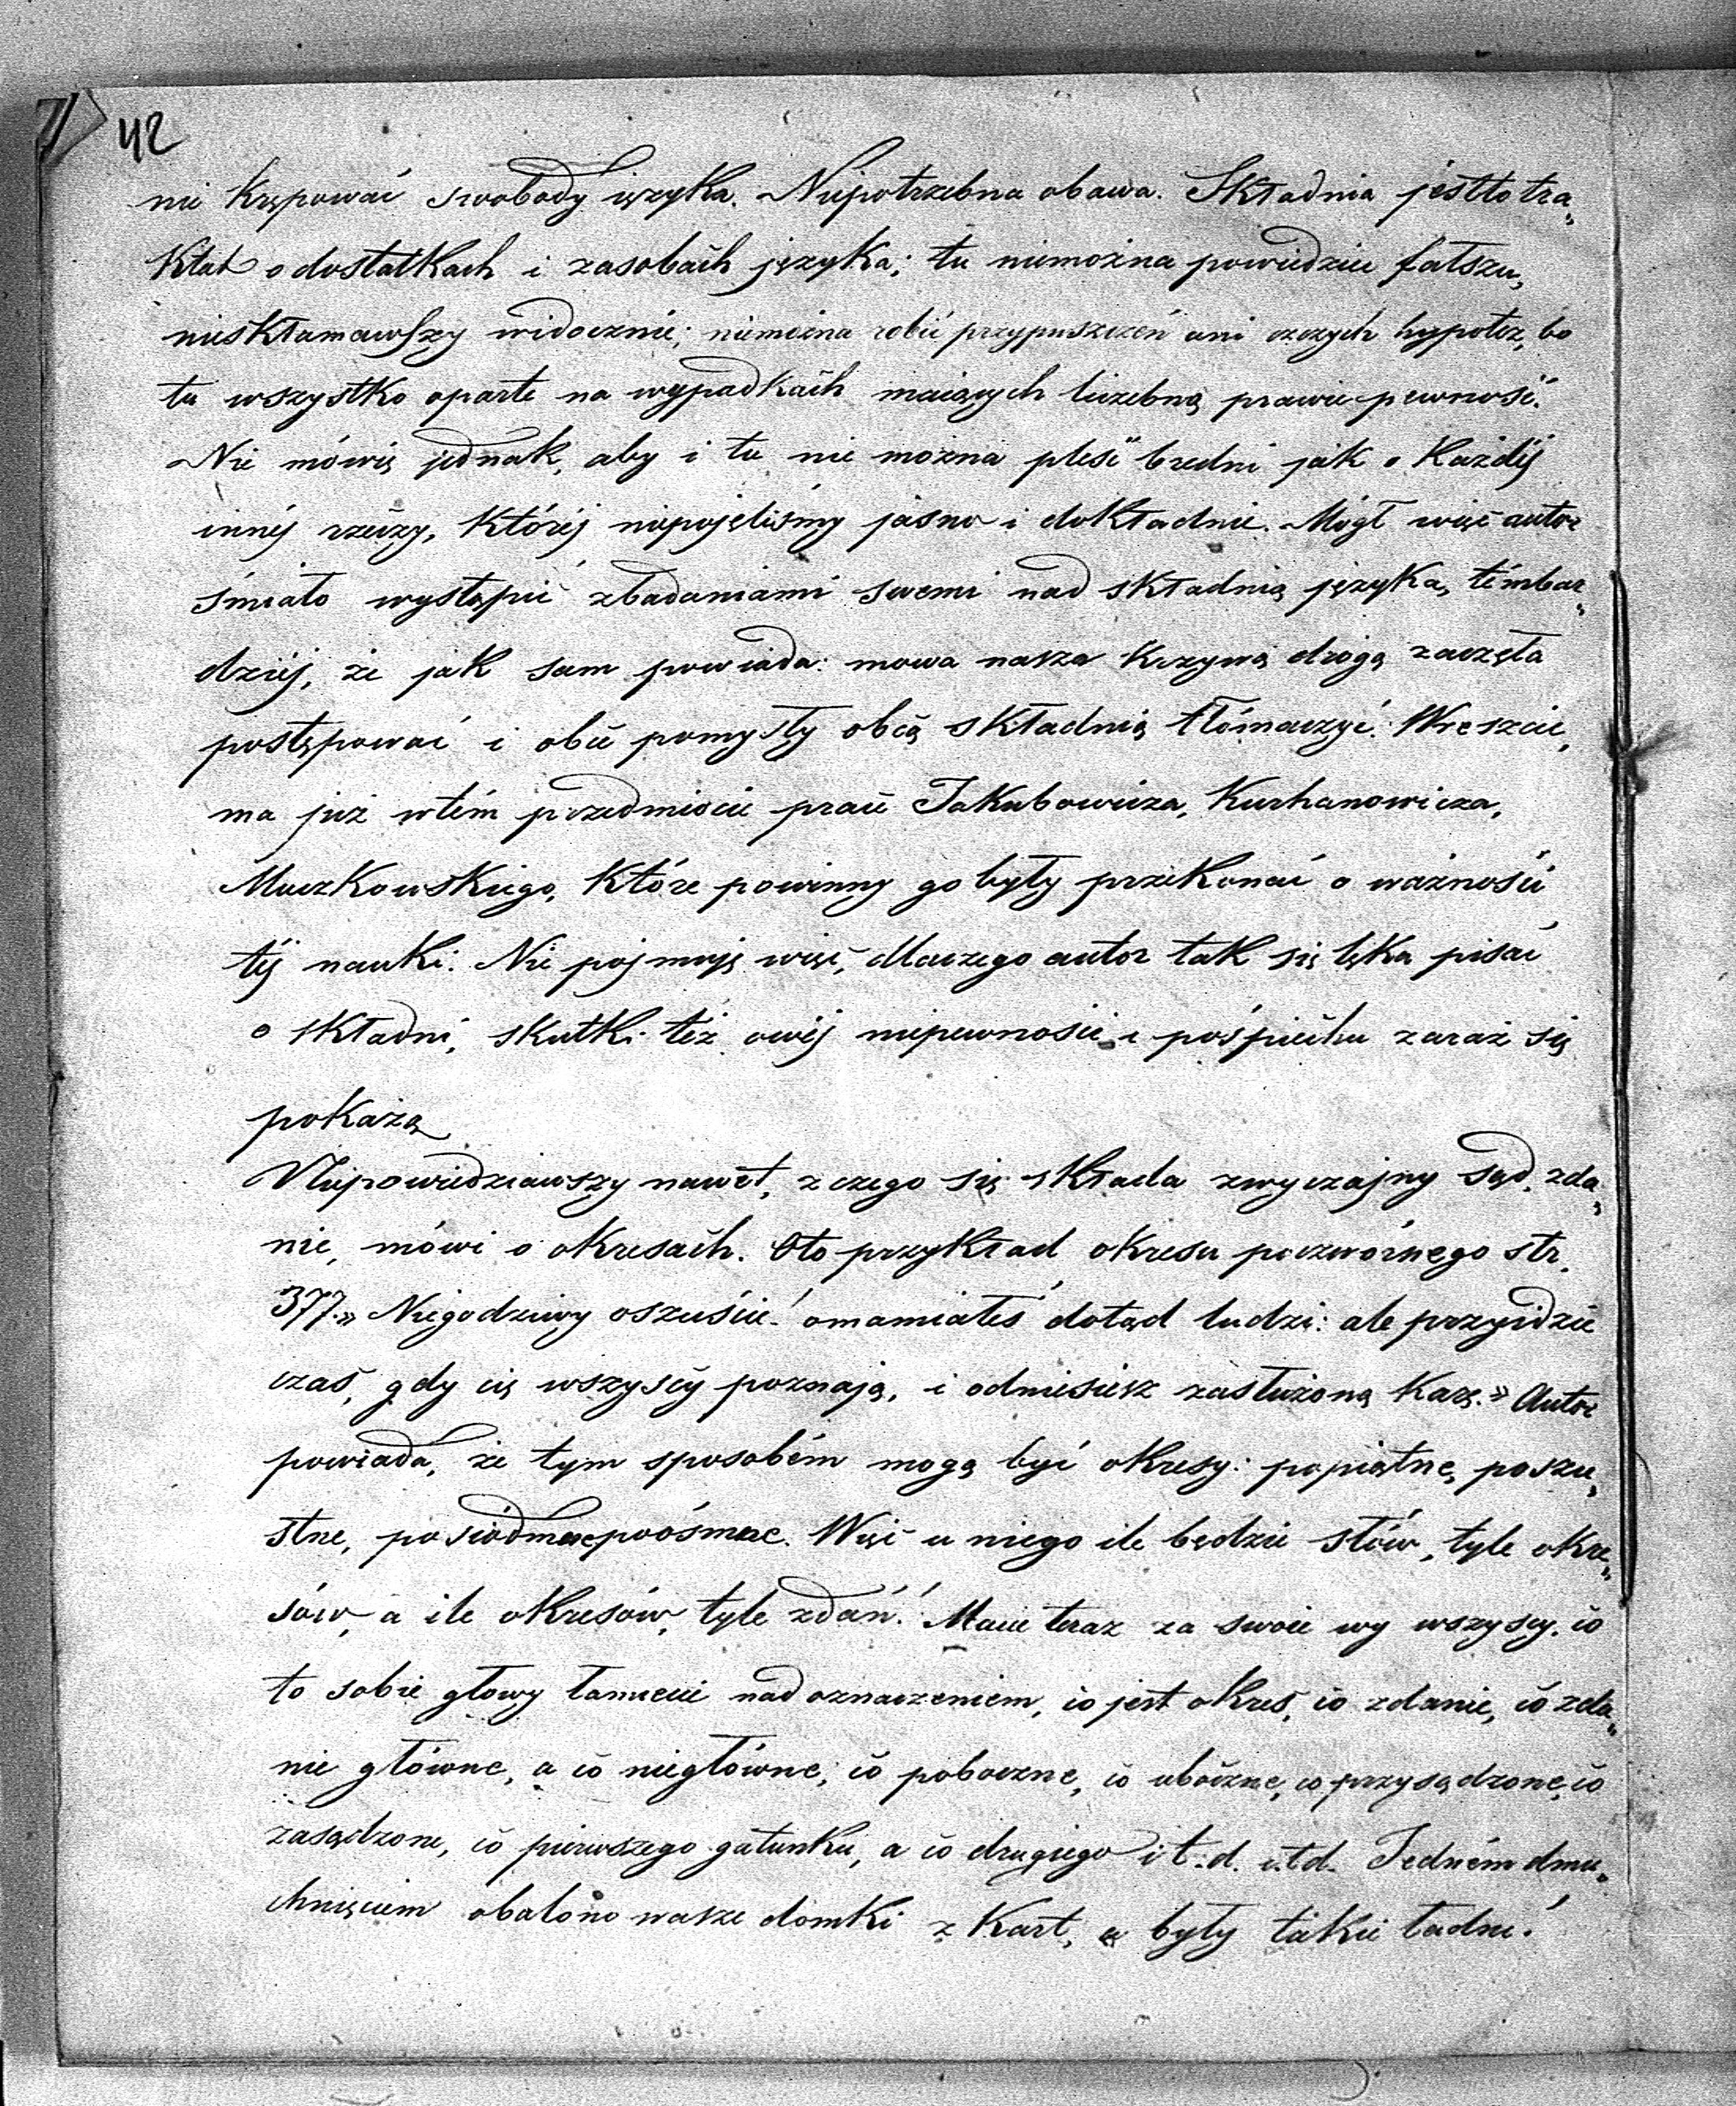 42
nie krępować swobody ięzyka. Niepotrzebna obawa. Składnia jestto tra„
ktat o dostatkach i zasobach języka; tu niemożna powiedzieć fałszu,
niesKłamawszy widocznie; niemożna robić przypuszczeń ani czczych hypotez, bo
tu wszystko oparte na wypadkach maiących liczebną prawie pewność.
Nie mówię jednak, aby i tu nie można pleść bredni jak o każdéj
innéj rzeczy, któréj niepojęliśmy jasno i dokładnie. Mógł więc autor
śmiało wystąpić zbadaniami swemi nad składnią języka, témbar„
dziéj, że jak sam powiada: mowa nasza krzywą drogą zaczęła
postępować i obce pomysły obcą składnią tłómaczyć. Wreszcie,
ma już wtém przedmiocie prace Jakubowicza, Kurhanowicza,
Muczkowskiego, które powinny go były przekonać o ważności
téj nauki. Nie pojmuję więc, dlaczego autor tak się lęka pisać
o składni, skutki téż owéj niepewności i pośpiechu zaraz się
pokażą
Niepowiedziawszy nawet, z czego się składa zwyczajny sąd, zda„
nie, mówi o okresach. Oto przykład okresu poczwórnego str.
377. „Niegodziwy oszuście! omamiałeś dotąd ludzi: ale przyidzie
czas, gdy cię wszyscy poznają, i odniesiesz zasłużoną karę." Autor
powiada, że tym sposobém mogą być okresy: popiątne, poszu„
stne, posiódme poósme. Więc u niego ile będzie słów, tyle okre„
sów, a ile okresów, tyle zdań! Macie teraz za swoie wy wszyscy, co
to sobie głowy łamiecie nad oznaczeniem, co jest okres, co zdanie, co zda„
nie główne, a co niegłówne, co poboczne, co uboczne, co przysądzone, co
zasądzone, co pierwszego gatunku, a co drugiego i t. d. i t d. Jedném dmu„
chnięciem obalono wasze domki z kart, a były takie ładne!